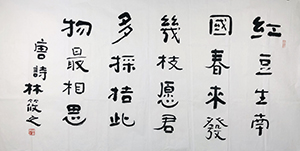 紅豆生南
國春來發
幾枝愿君
多採桔此
物最相思
唐詩林筱之